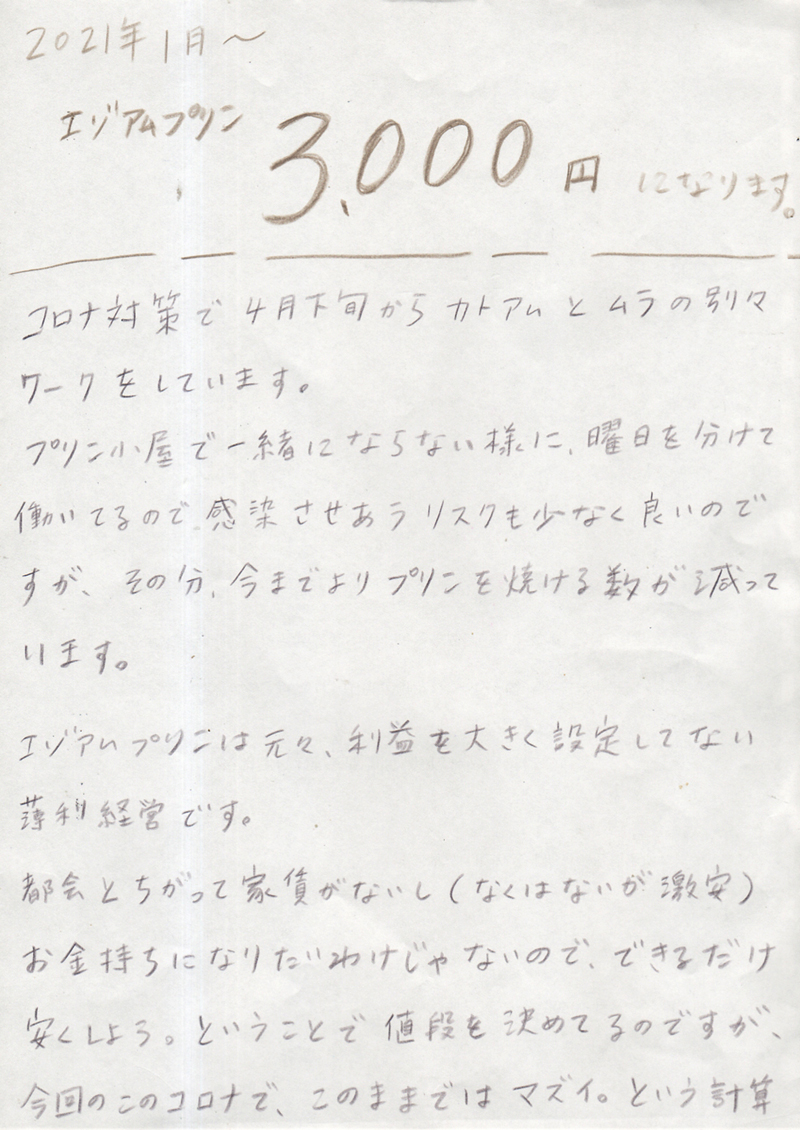 2021年1月〜
エゾアムプリン
3,000円になります。
コロナ対策で4月下旬からカトアムとムラの別々
ワークをしています。
プリン小屋で一緒にならない様に、曜日を分けて
働いてるので感染させあうリスクも少なく良いので
すが、その分、今までよりプリンを焼ける数が減って
います。
エゾアムプリンは元々、利益を大きく設定してない
薄利経営です。
都会とちがって家賃がないし(なくはないが激安)
お金持ちになりたいわけじゃないので、できるだけ
安くしよう。ということで値段を決めてるのですが、
今回のこのコロナで、このままではマズイ。という計算